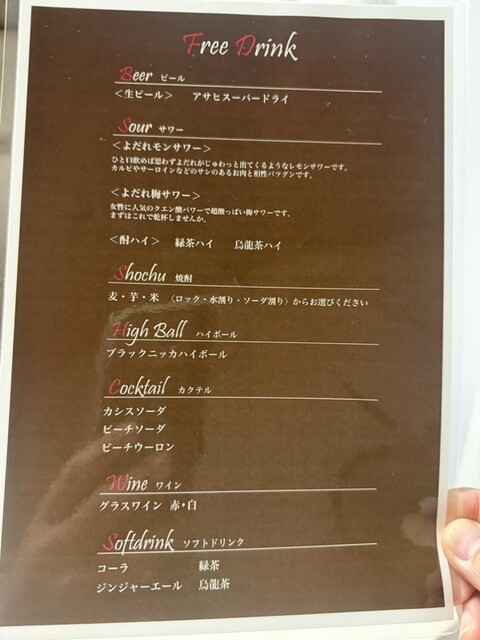 Free Drink
Beer ビール
＜生ビール＞ アサヒスーパードライ
Sour サワー
＜よだれモンサワー＞
ひと口飲めば思わずよだれがじゅわっと出てくるようなレモンサワーです。
カルビやサーロインなどのサシのあるお肉と相性バツグンです。
＜よだれ梅サワー＞
女性に人気のクエン酸パワーで超酸っぱい梅サワーです。
まずはこれで乾杯しませんか。
＜酎ハイ＞ 緑茶ハイ 烏龍茶ハイ
Shochu 焼酎
麦・芋・米 （ロック・水割り・ソーダ割り）からお選びください
High Ball ハイボール
ブラックニッカハイボール
Cocktail カクテル
カシスソーダ
ピーチソーダ
ピーチウーロン
Wine ワイン
グラスワイン 赤・白
Softdrink ソフトドリンク
コーラ 緑茶
ジンジャーエール 烏龍茶